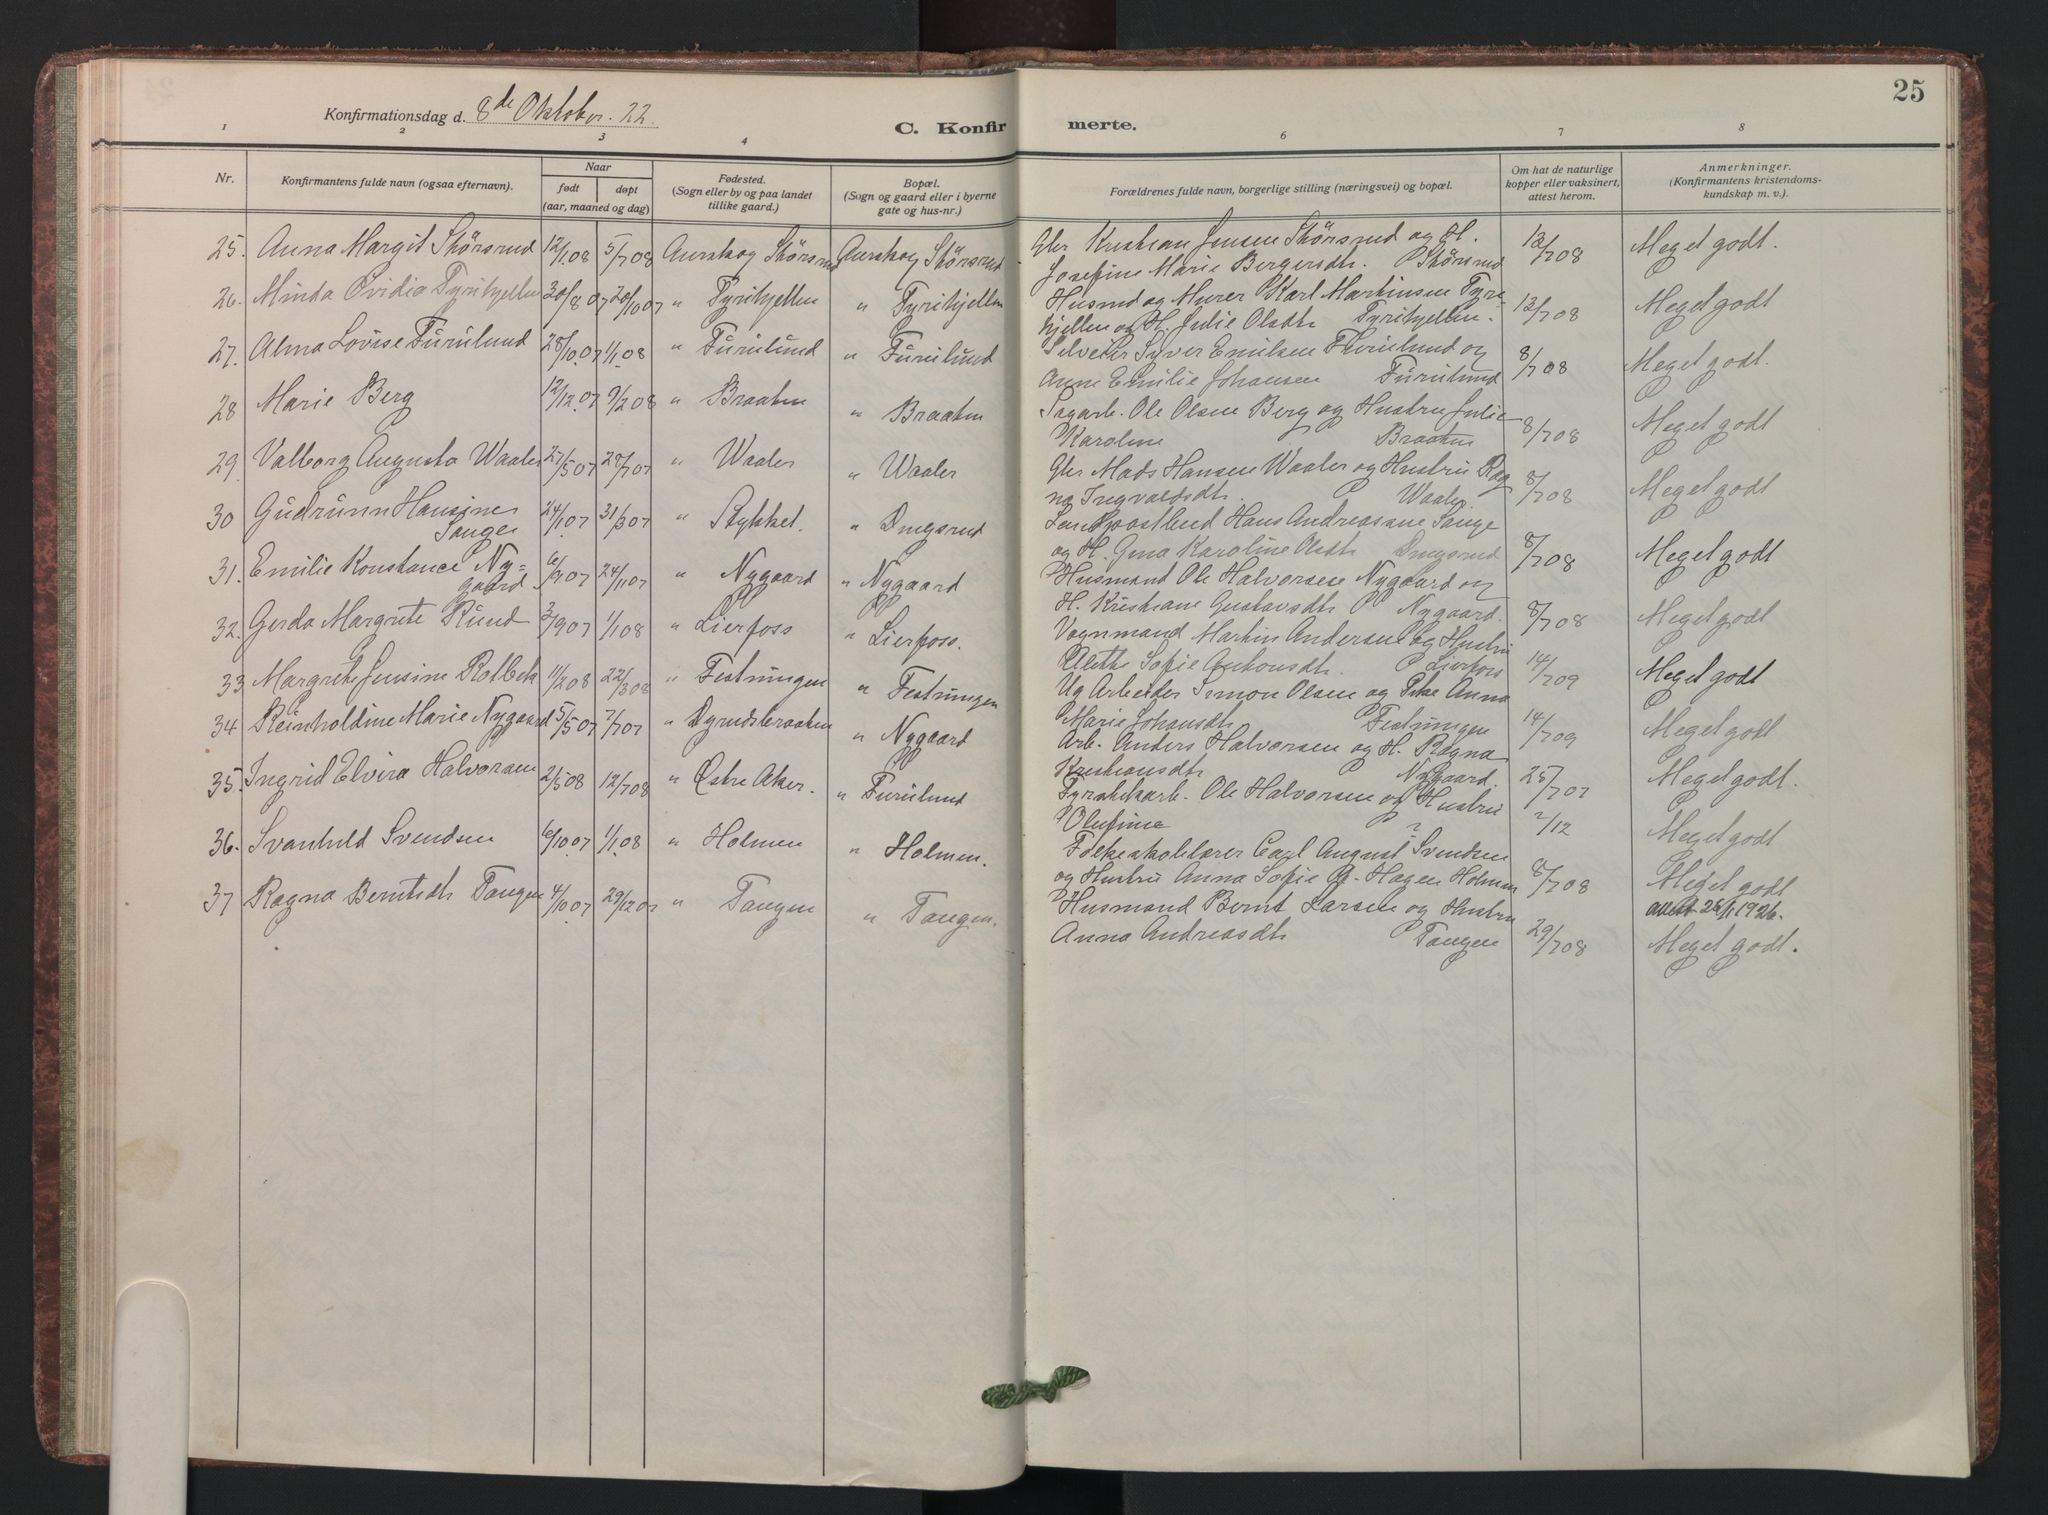 25
Konfirmationsdag d. 8de Oktober. 22.
C. Konfirmerte.
1 2 3 4 6 7 8
Nr.
Konfirmantens fulde navn (ogsaa efternavn).
Naar
født døpt
(aar, maaned og dag)
Fødested.
(Sogn eller by og paa landet
tillike gaard.)
Bopæl.
(Sogn og gaard eller i byerne
gate og hus-nr.)
Forældrenes fulde navn, borgerlige stilling (næringsvei) og bopæl.
Om hat de naturlige
kopper eller vaksinert,
attest herom.
Anmerkninger.
(Konfirmantens kristendoms-
kundskap m. v.).
25. Anna Margit Skörsrud 12/1 08 5/7 08 Aurskog Skörsrud Aurskog Skörsrud Gbr Kristian Jensen Skörsrud og H.
Josefine Marie Bergersdtr. Skörsrud 13/7 08 Meget godt.
26. Minda Ovidia Tyrihjellen 30/8 07 20/10 07 " Tyrihjellen " Tyrihjellen Husmd og Murer Karl Martinsen Tyri-
hjellen og H. Julie Olsdtr Tyrihjellen. 13/7 08 Meget godt
27. Alma Lovise Furulund 28/10 07 1/1 08 " Furulund " Furulund Selveier Syver Emilsen Furulund og
Anne Emilie Johansen Furulund 8/7 08 Meget godt.
28 Marie Berg 12/12 07 9/2 08 " Braaten " Braaten Sagarb. Ole Olsen Berg og Hustru Julie
Karoline Braaten 8/7 08 Meget godt
29. Valborg Augusta Waaler 27/5 07 28/7 07 " Waaler " Waaler Gbr Mads Hansen Waaler og Hustru Rag
na Ingvaldsdtr. Waaler. 8/7 08 Meget godt
30 Gudrunn Hansine
Sange 24/1 07 31/3 07 " Stykket " Dingsrud Landpostbud Hans Andreassen Sange
og H. Gina Karoline Olsdtr Dingsrud 8/7 08 Meget godt
31. Emilie Konstance Ny-
gaard 24/11 07 " Nygaard " Nygaard Husmand Ole Halvorsen Nygaard og
H. Kristiane Gustavsdtr Nygaard. 8/7 08 Meget godt
32. Gerda Margrete Rund 3/9 07 1/1 08 " Lierfoss " Lierfoss. Vognmand Martin Andersen og Hustru
Alette Sofie Antonsdtr. Lierfoss 14/7 09 Meget godt
33 Margrete Jensine Rolbek 11/2 08 22/3 08 " Festningen " Festningen Ug Arbeider Simon Olsen og Pike Anna
Marie Johansdtr Festningen 14/7 09 Meget godt
34 Reinholdine Marie Nygaard 5/5 07 7/7 07 " Dyrudsbraaten " Nygaard Arb. Anders Halvorsen og H. Ragna
Kristiansdtr Nygaard. 25/7 07 Meget godt.
35. Ingrid Elvira Halvorsen 2/5 08 12/7 08 " Östre Aker. " Furulund Fyrstikarb. Ole Halvorsen og Hustru
Olufine ? ?/12 Meget godt
36. Svanhild Svendsen 6/10 07 1/1 08 " Holmen " Holmen. Folkeskolelærer Carl August Svendsen
og Hustru Anna Sofie G. Hagen Holmen 8/7 08 Meget godt
attest 26/1 1926.
37 Ragna Berntsdtr Tangen 4/10 07 29/12 07 " Tangen " Tangen. Husmand Bernt Larsen og Hustru
Anna Andreasdtr Tangen 29/7 08 Meget godt.